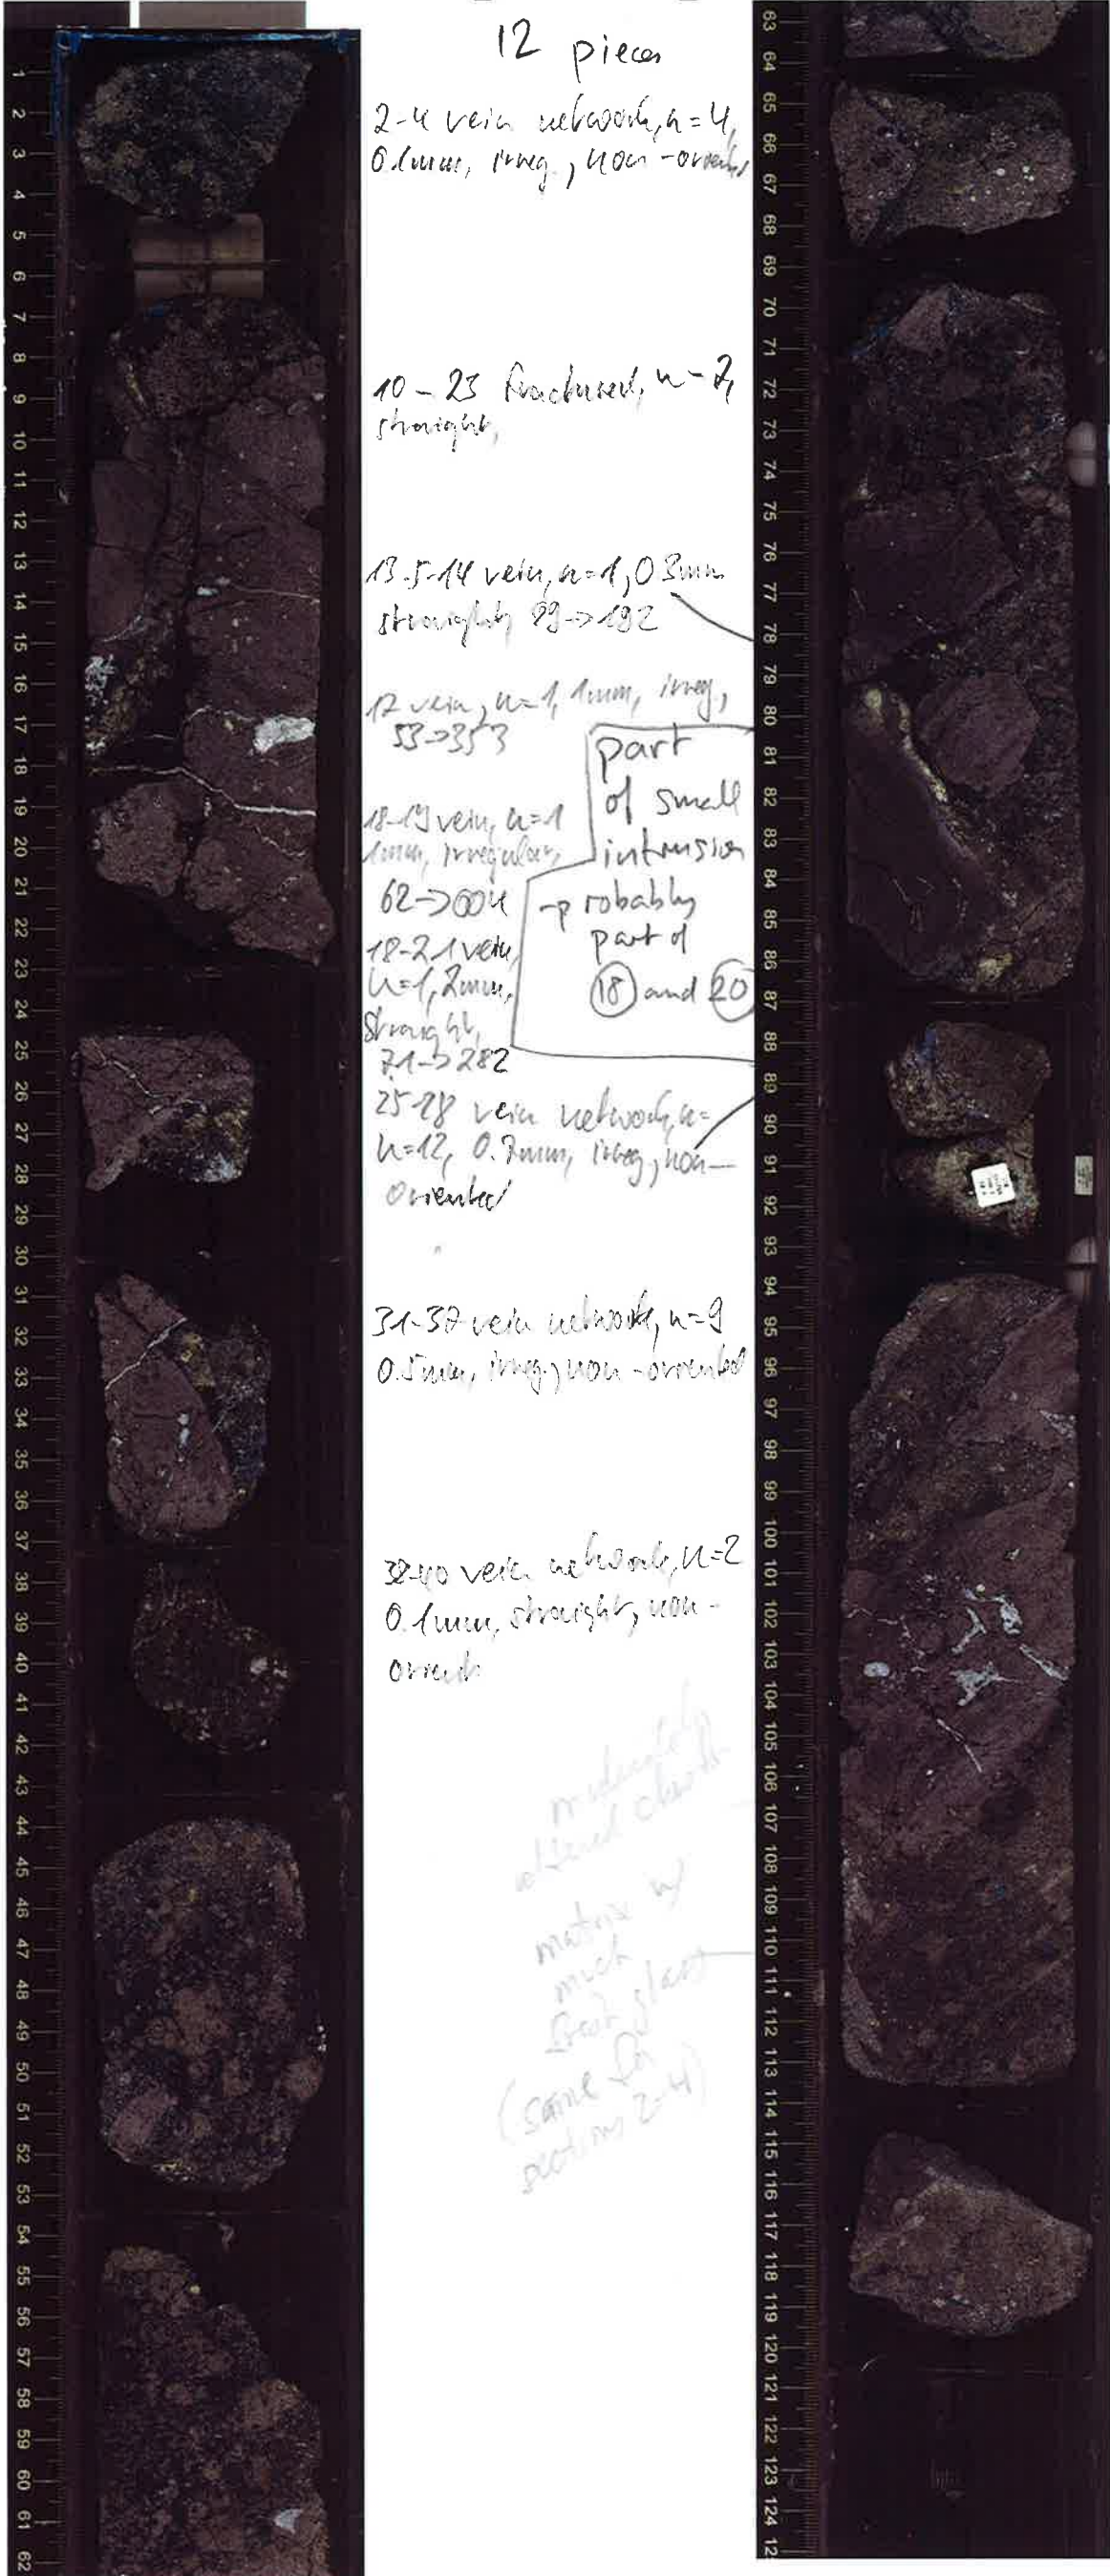 1
2
3
4
5
6
7
8
9
10
11
12
13
14
15
16
17
18
19
20
21
22
23
24
25
26
27
28
29
30
31
32
33
34
35
36
37
38
39
40
41
42
43
44
45
46
47
48
49
50
51
52
53
54
55
56
57
58
59
60
61
62
12 pieces
2-4 vein network, n=4,
0.1mm, irreg, non-orient
10-23 fractured, n=
straight,
13.5-14 vein, n=1, 0.3mm
straight,
17 vein, n=1, 1mm, irreg,
53->353
18-19 vein, n=1
1mm, irregular,
62->004
18-21 vein,
n=1, 2mm,
straight,
71->282
25-28 vein network, n=
n=12, irreg, non-
oriented
31-37 vein network, n=9
0.5mm, irreg, non-oriented
vein network, n=2
0.1mm, straight, non-
orient
part
of small
intrusion
-probably
part of
18 and 20
moderately
altered clasts
matrix w/
much
fresh glass
(same for
sections 2-4)
63
64
65
66
67
68
69
70
71
72
73
74
75
76
77
78
79
80
81
82
83
84
85
86
87
88
89
90
91
92
93
94
95
96
97
98
99
100
101
102
103
104
105
106
107
108
109
110
111
112
113
114
115
116
117
118
119
120
121
122
123
124
12